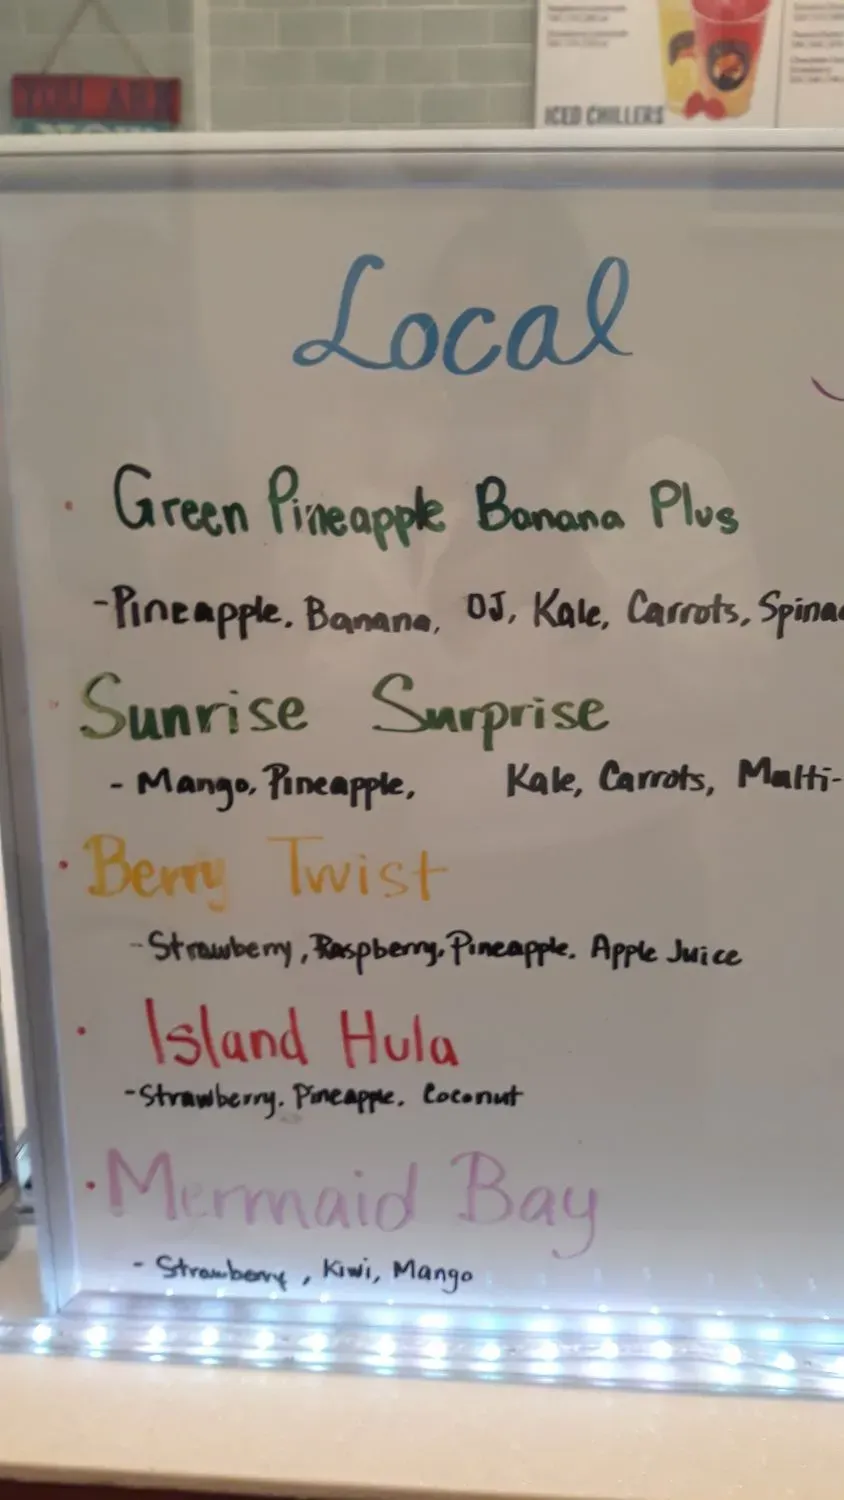 YOU ARE
ICED CHILLERS
Local
· Green Pineapple Banana Plus
-Pineapple. Banana, OJ, Kale, Carrots, Spina
· Sunrise Surprise
- Mango, Pineapple, Kale, Carrots, Multi-
· Berry Twist
-Strawberry, Raspberry, Pineapple. Apple Juice
· Island Hula
-Strawberry. Pineapple. Coconut
· Mermaid Bay
- Strawberry, Kiwi, Mango